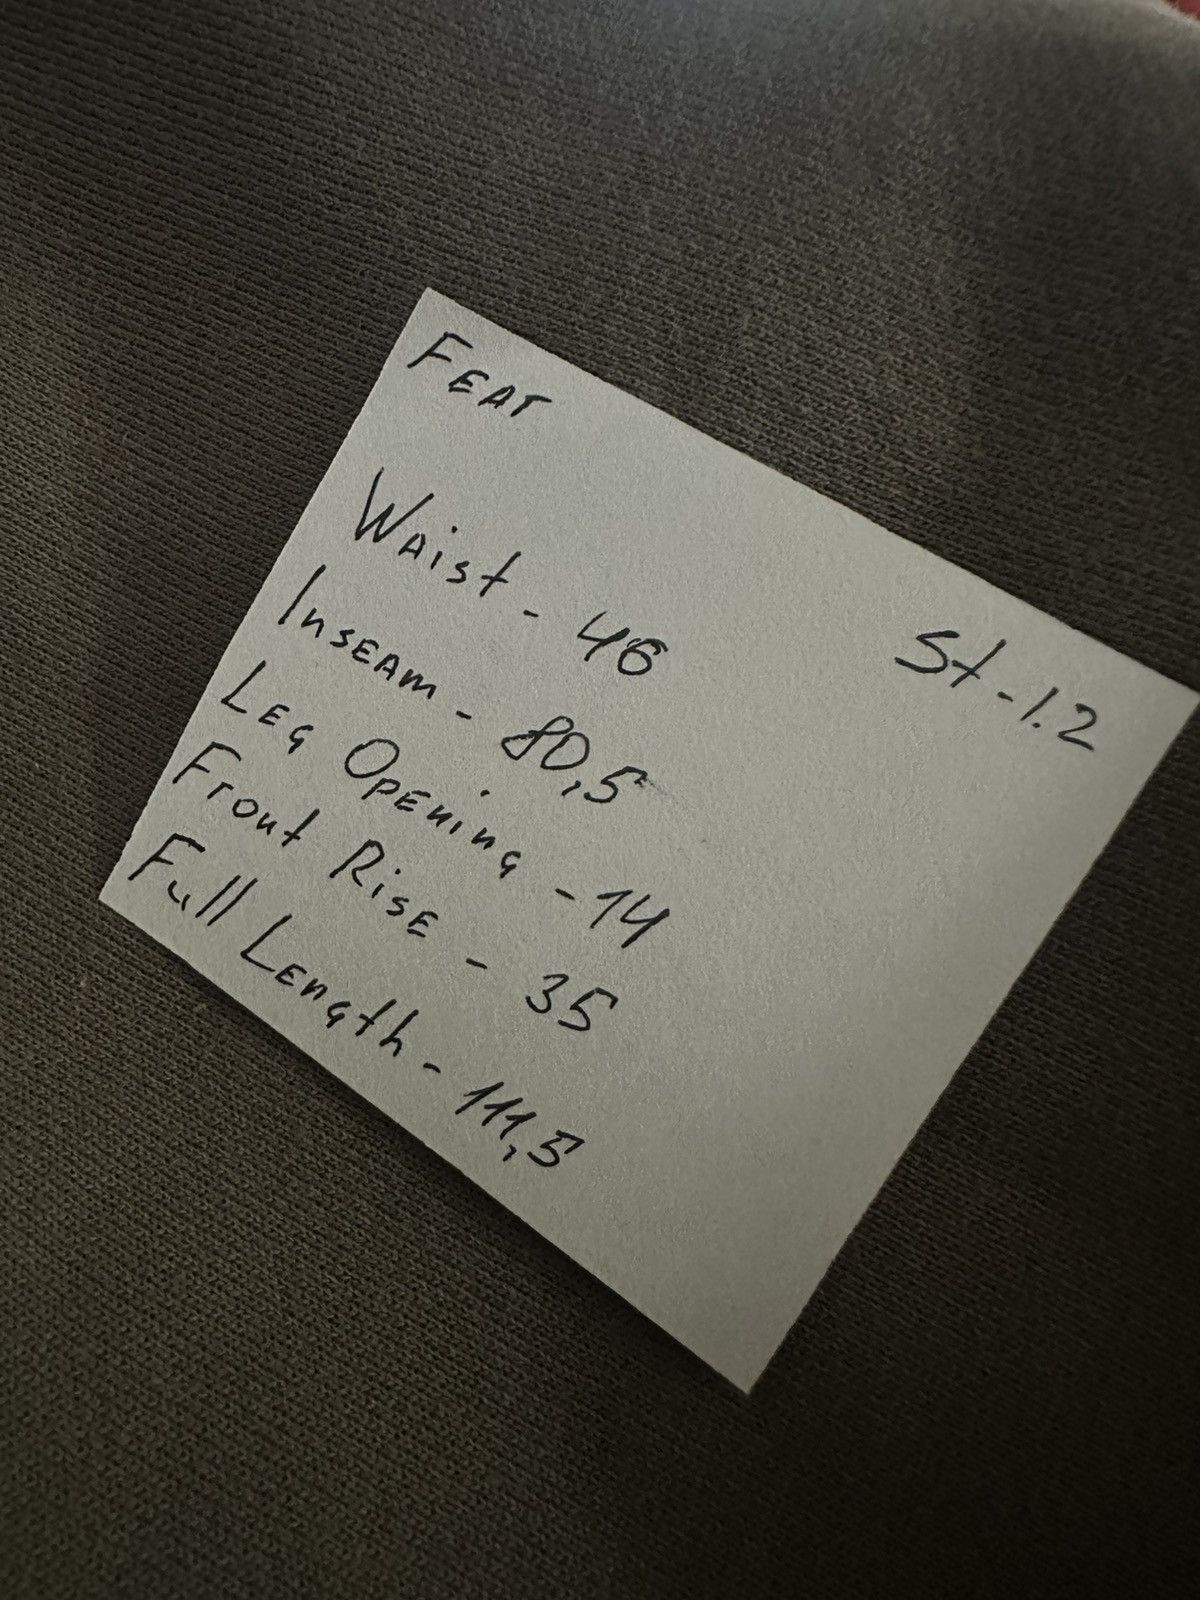 FEAT
St - 1.2
Waist - 46
Inseam - 80,5
Leg Opening - 14
Front Rise - 35
Full Length - 111,5